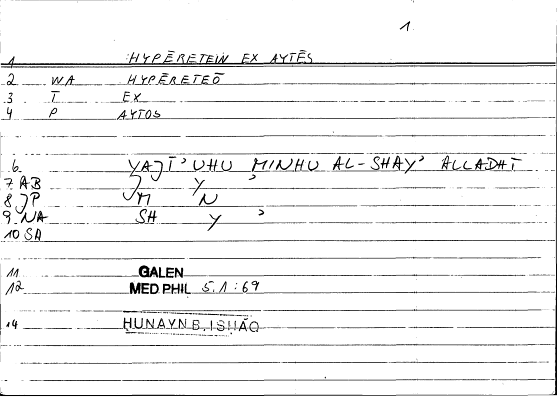 1
1 HYPĒRETEIN EX AYTĒS
2 WA HYPĒRETEŌ
3 T EX
4 P AYTOS
6 YAJĪ'UHU MINHU AL-SHAY' ALLADHĪ
7 AB J Y '
8 JP M N
9 NA SH Y '
10 SA
11 GALEN
12 MED PHIL 5.1:69
14 HUNAYN B. ISHĀQ